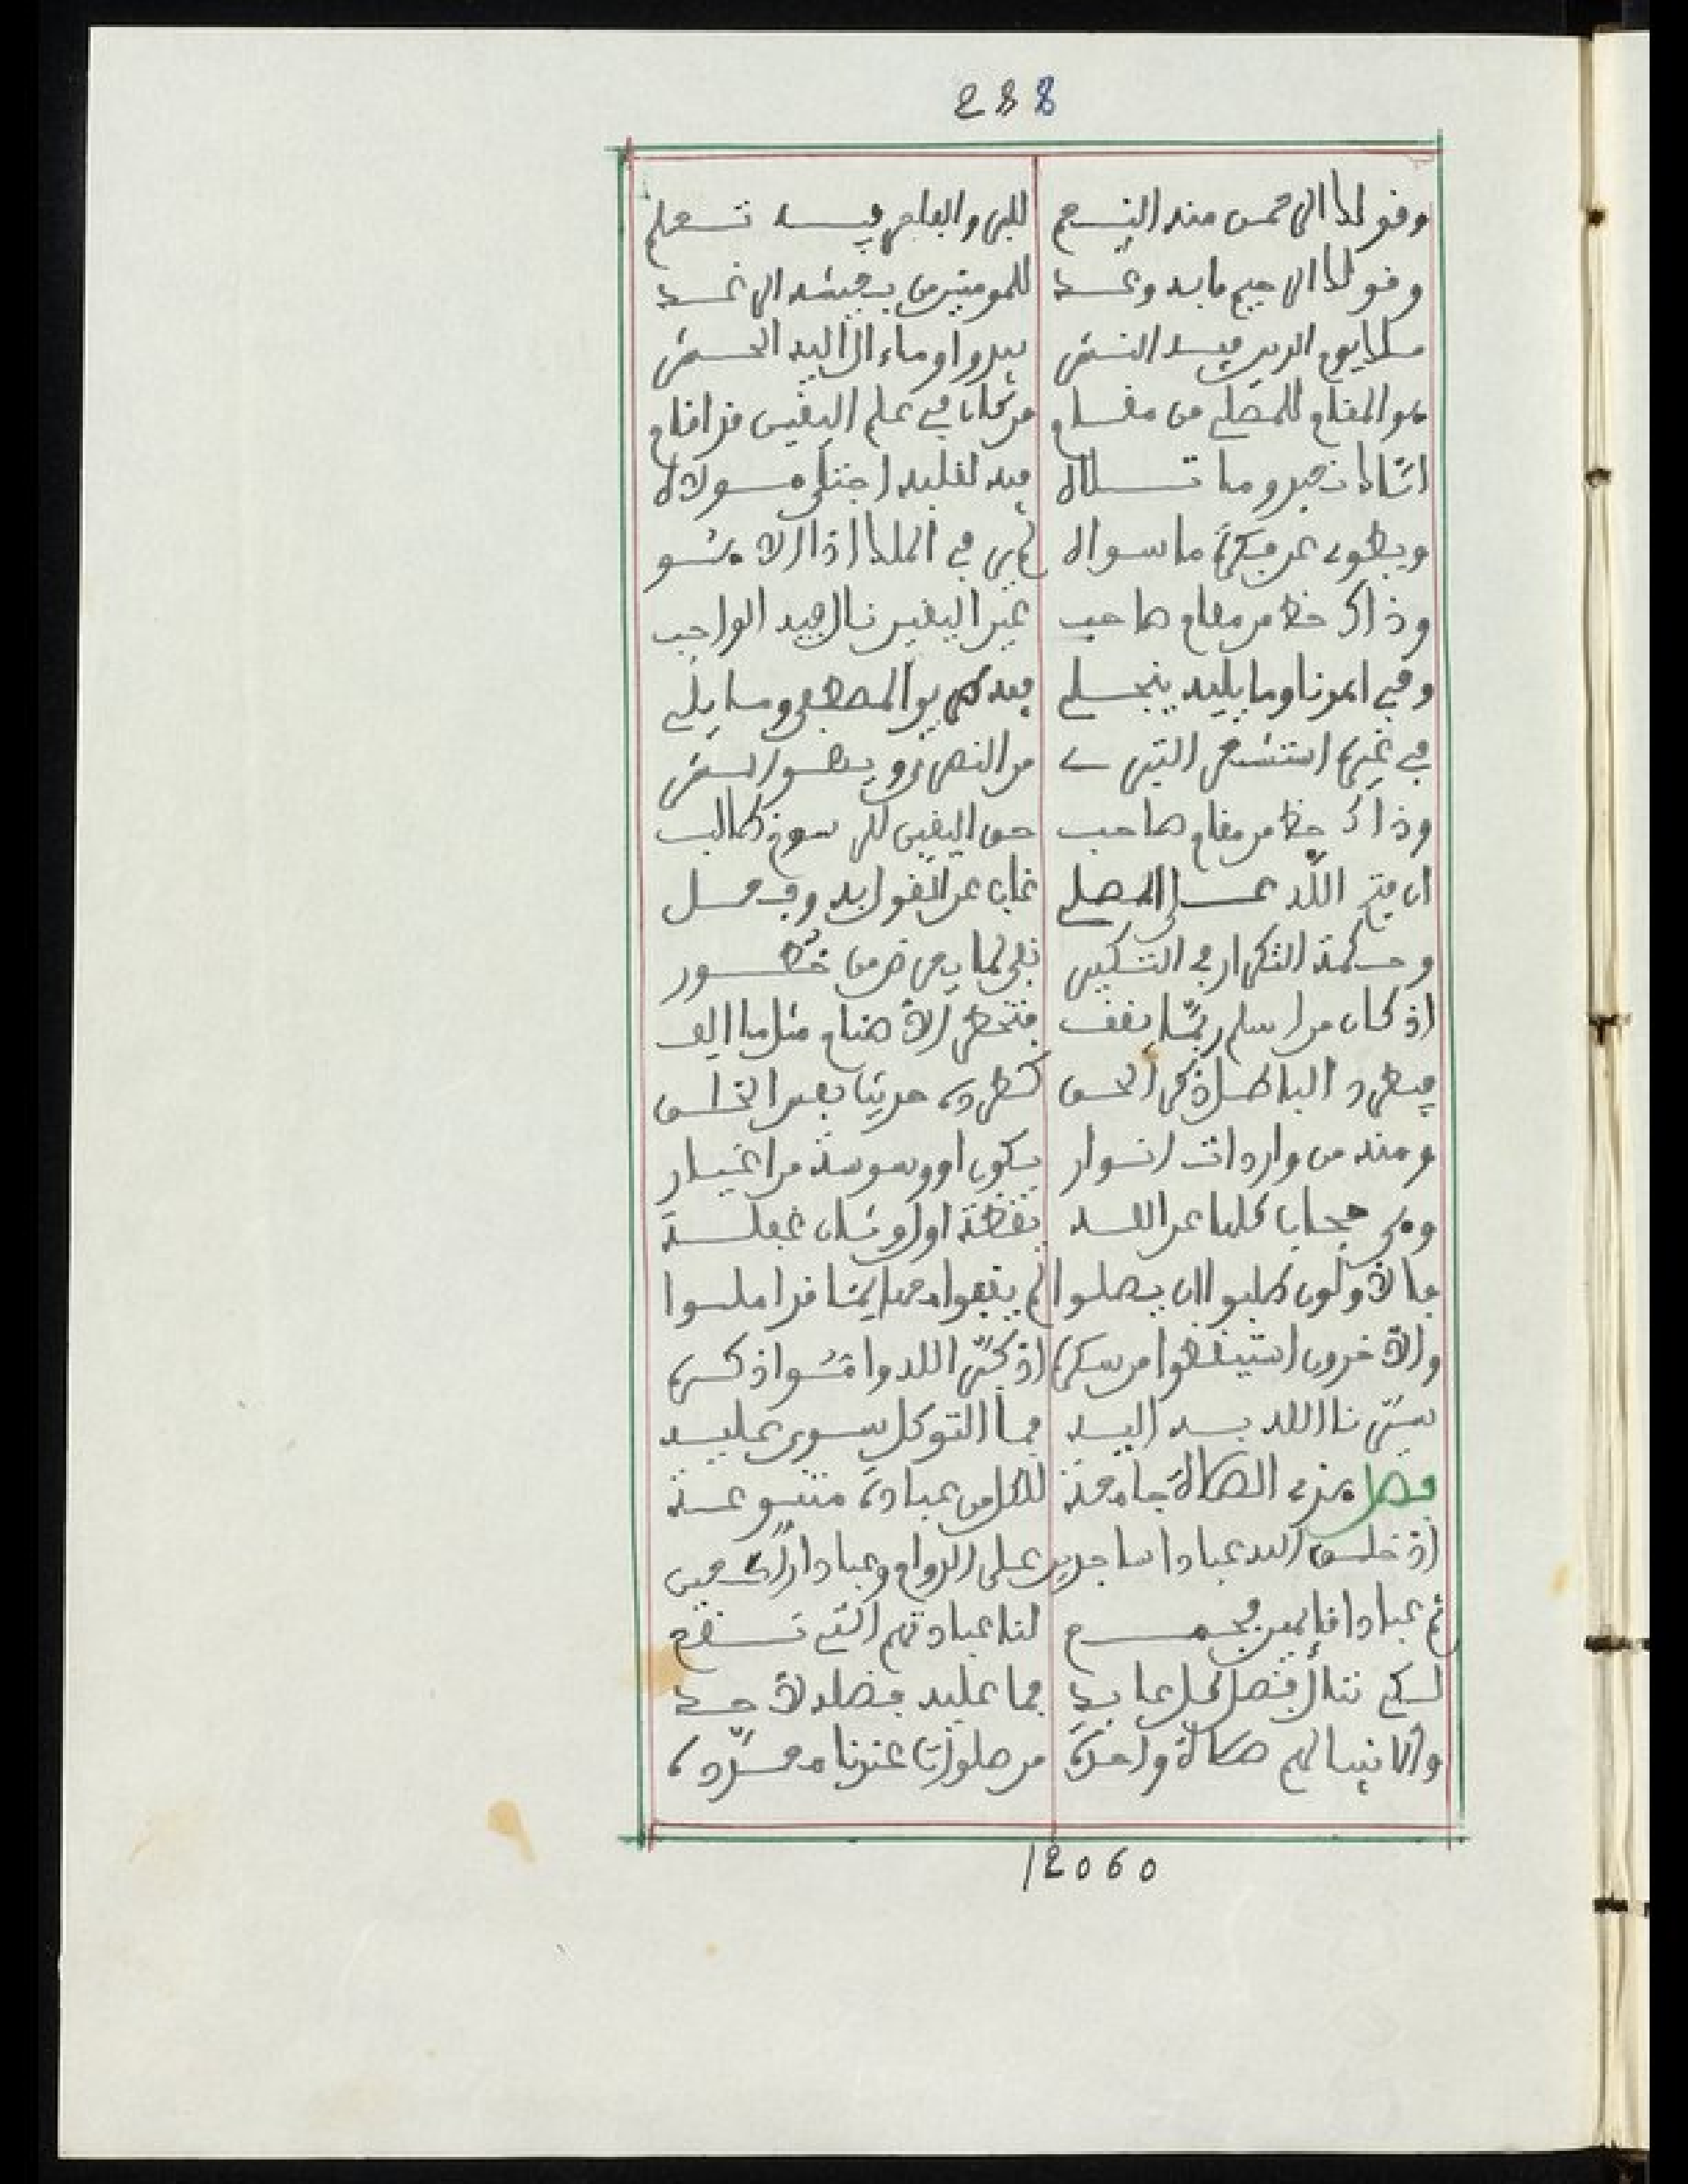 288
وقولنا الرحمن منه النعم للبر والفاجر فيه تعلم
وقولنا الرحيم ما به وعد للمومنين في حبشه الرغد
ملك يوم الدين فيه النشر يبدوا وما ءال اليه الحشر
هو المقام للمصلي من مقام من كان في علم اليقين قد اقام
اشاء تدبر وما تلاه فيه لقلبه اجتلى مولاه
ويطوى عن فكره ما سواه لم ير في الملا اذا الا هو
وذاك حظ من مقام صاحب عين اليقين نال فيه الواجب
وفي اهدنا وما يليه ينجلي فيه طريق المصطفى وما يلي
في غيره استشعر التبري من النصير ويطور السر
وذاك حظ من مقام صاحب حق اليقين لك سوغ طالب
ان فتح الله على المصلي غاب عن القول به وفعل
وحكمة التكرار في التكبير نفي لما يعرض من خطور
اذ كان من اسلم ربما يقف فتخطر الاصنام مثل ما الف
فيطرد الباطل ذكر الحق كطرده حديثا بعد الخلق
ومنه من واردات انوار يكون او وسوسة من اغيار
وهي حجاب كلها عن الله يقظة اولو شان غفلة
فالاولون طلبوا ان يصلوا لم يقفوا مع ربما قد املوا
والاخرون استيقظوا من سكره اذ كبر الله واموا ذكره
سيرنا الله به اليه فما التوكل سوى عليه
فصل هذي الصلاة جامعة لكل من عبادة متنوعة
اذ خلق الله عبادا ساجدين على الدوام وعبادا راكعين
ثم عبادا قايمين فجمع لنا عبادتهم التي تقع
لكي ننال فضل كل عابد فما عليه فضله لاحد
والانبيا لهم صلاة واحدة من صلوات عندنا معددة
12060